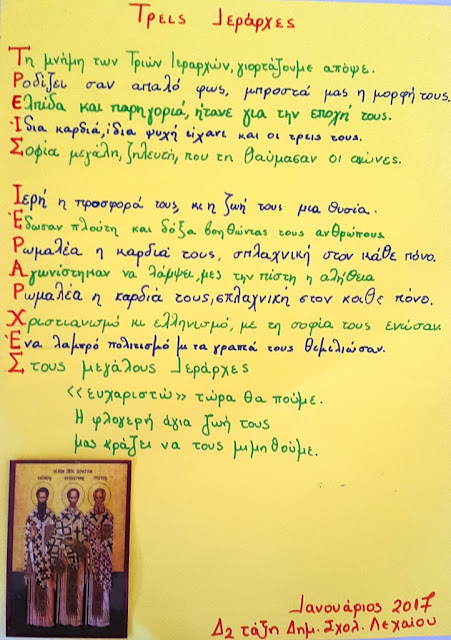 Τρεις Ιεράρχες
Τη μνήμη των Τριών Ιεραρχών, γιορτάζουμε απόψε.
Ροδίζει σαν απαλό φως, μπροστά μας η μορφή τους.
Ελπίδα και παρηγοριά, ήτανε για την εποχή τους.
Ίδια καρδιά, ίδια ψυχή είχανε και οι τρεις τους.
Σοφία μεγάλη, ζηλευτή, που τη θαύμασαν οι αιώνες.
Ιερή η προσφορά τους, κι η ζωή τους μια θυσία.
Έδωσαν πλούτη και δόξα βοηθώντας τους ανθρώπους.
Ρωμαλέα η καρδιά τους, σπλαχνική στον κάθε πόνο.
Αγωνίστηκαν να λάμψει, μες την πίστη η αλήθεια
Ρωμαλέα η καρδιά τους, σπλαχνική στον κάθε πόνο.
Χριστιανισμό κι ελληνισμό, με τη σοφία τους ένωσαν.
Ένα λαμπρό πολιτισμό με τα γραπτά τους θεμελίωσαν.
Στους μεγάλους Ιεράρχες
<<ευχαριστώ>> τώρα θα πούμε.
Η φλογερή άγια ζωή τους
μας κράζει να τους μιμηθούμε.
Ιανουάριος 2017
Δ2 τάξη Δημ. Σχολ. Λεχαίου